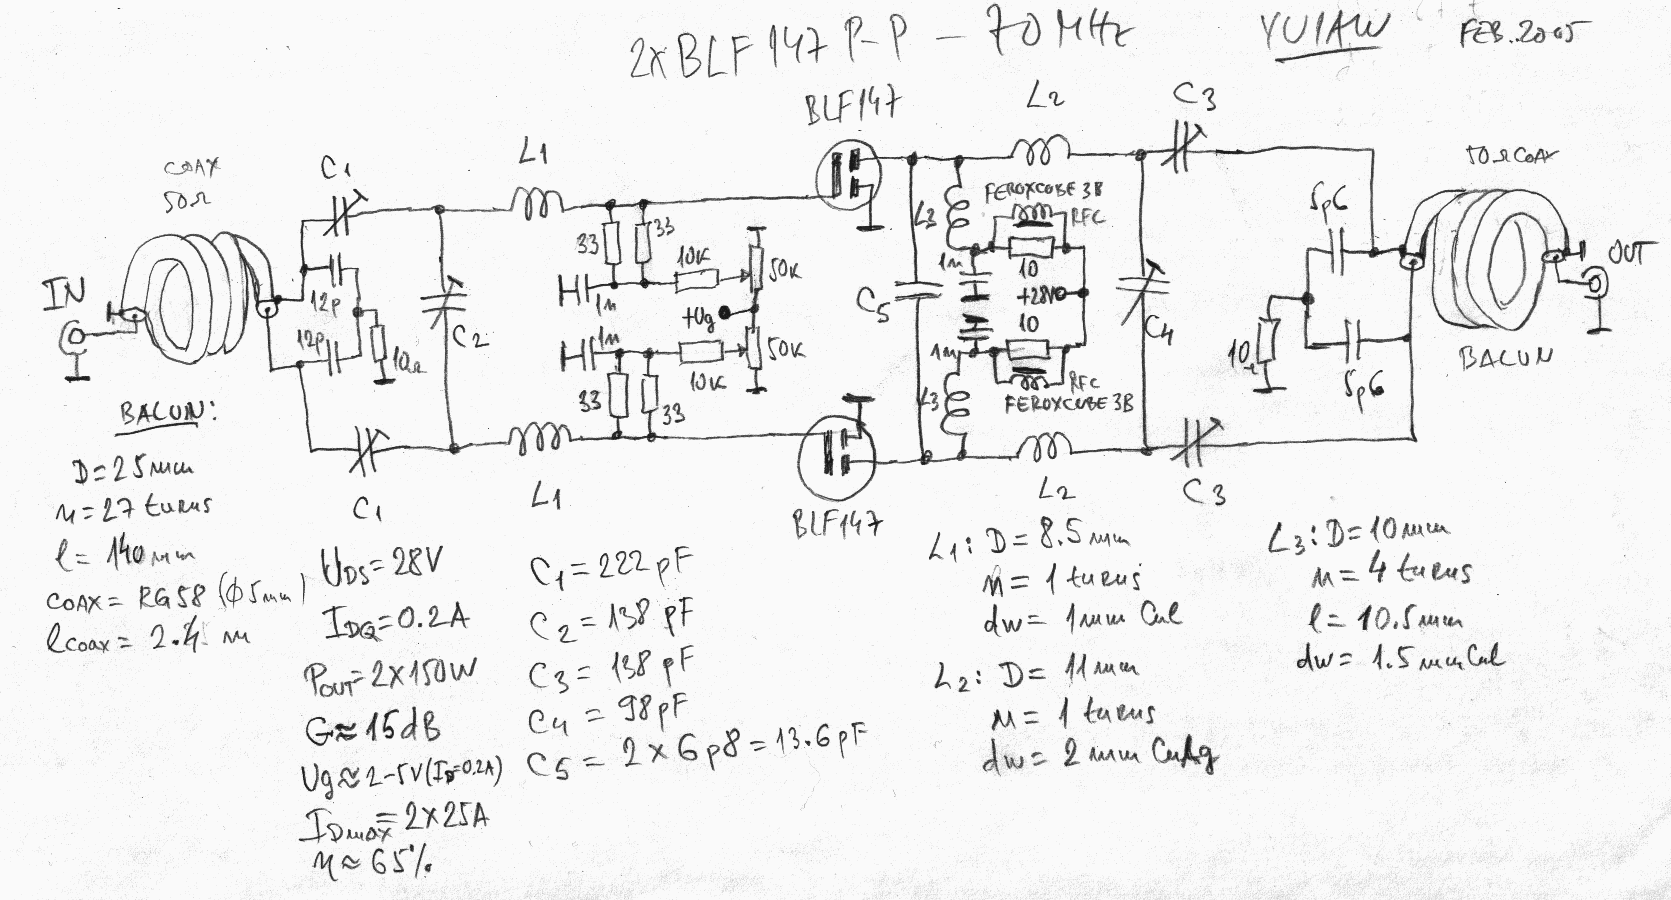 2xBLF147 P-P — 70MHz
YU1AW
FEB.2005
BLF147
L2
C3
COAX
50Ω
C1
L1
50ΩCOAX
5p6
FEROXCUBE 3B
RFC
L3
33
33
10K
50K
1n
10
1n
12p
IN
OUT
+28V
+Ug
C5
C4
C2
12p
10Ω
1n
10
1n
50K
10K
33
33
10Ω
BALUN
5p6
RFC
FEROXCUBE 3B
L3
C1
L1
BLF147
L2
C3
BALUN:
D=25mm
n=27 turns
l= 140mm
COAX= RG58 (Ø5mm)
lcoax= 2.4 m
UDS=28V
IDQ=0.2A
POUT=2x150W
G≈15dB
Ug≈2-5V(ID=0.2A)
IDmax=2x25A
η≈65%
C1=222pF
C2=138pF
C3=138pF
C4=98pF
C5= 2x6p8=13.6pF
L1: D=8.5mm
n= 1 turns
dw= 1mm CuL
L2: D= 11mm
n= 1 turns
dw= 2mm CuAg
L3: D=10mm
n= 4 turns
l= 10.5mm
dw= 1.5mm CuL